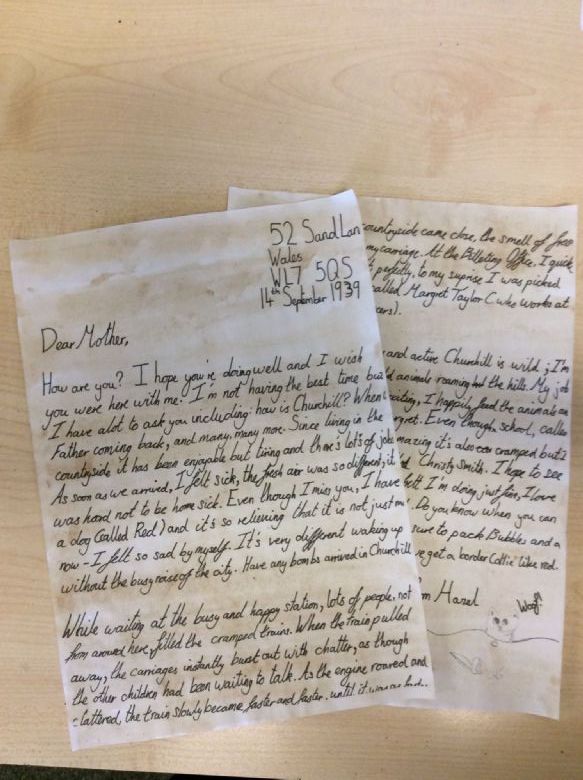 52 Sand Lan
Wales
WL7 5QS
14th September 1939
Dear Mother,
How are you? I hope you're doing well and I wish
you were here with me. I'm not having the best time but
I have alot to ask you including: how is Churchill? When
Father coming back, and many, many more. Since living in the
countryside it has been enjoyable but tiring and there's lots of jobs
As soon as we arrived, I felt sick, the fresh air was so different, it
was hard not to be home sick. Even though I miss you, I have
a dog (called Red) and it's so relieving that it is not just me
now - I felt so sad by myself. It's very different waking up
without the busy noise of the city. Have any bombs arrived in Churchill
While waiting at the busy and happy station, lots of people, not
from around here, filled the cramped trains. When the train pulled
away, the carriages instantly burst out with chatter, as though
the other children had been waiting to talk. As the engine roared and
clattered, the train slowly became faster and faster. until it was
countryside came close, the smell of
my carriage. At the Billeting Office, I quick
perfectly, to my suprise I was picked
called Margret Taylor (who works at
ars).
and active Churchill is wild; I'm
animals roaming the hills. My job
waiting, I happily feed the animals an
rgret. Even though, school, called
mazing it's also cramped but I
Christy Smith. I hope to see
I'm doing just fine, I love
. Do you know when you can
sure to pack Bubbles and a
get a border Collie like red.
m Hazel
Woof!